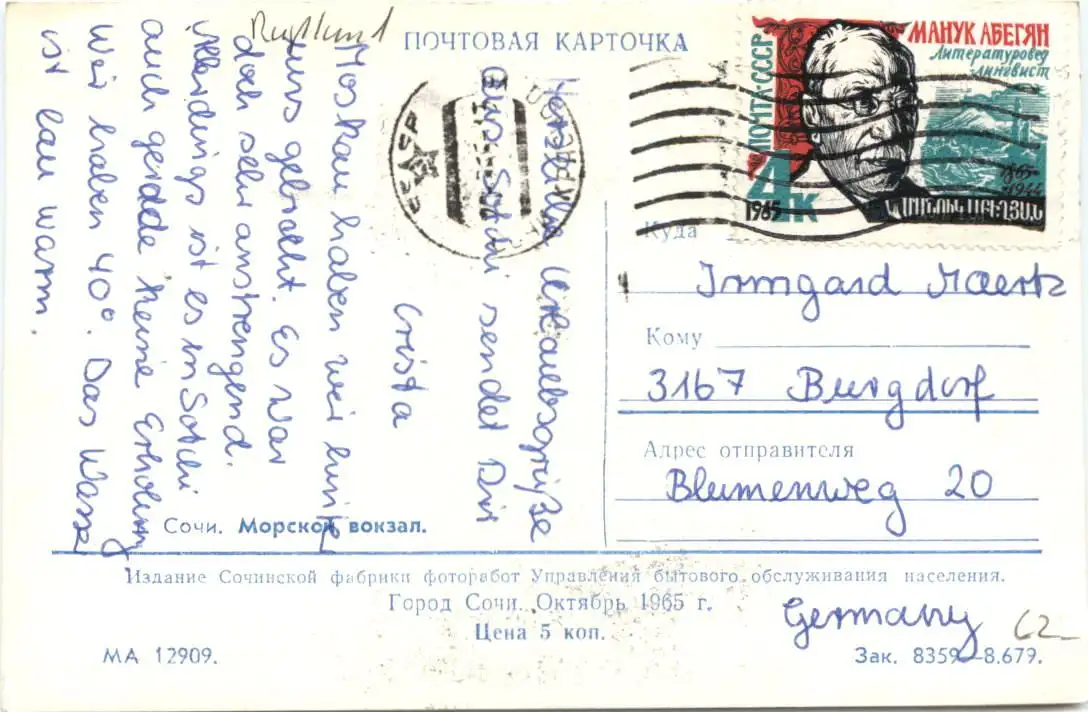 Rußland
ПОЧТОВАЯ КАРТОЧКА
МАНУК АБЕГЯН
Литературовед
лингвист
ПОЧТА СССР
4К
1965
1865-
1944
ՄԱՆՈՒԿ ԱԲԵՂՅԱՆ
СССР
Herzliche Urlaubsgrüße
aus Sotchi sendet Dir
Crista
Moskau haben wir hinter
uns gebracht. Es war
doch sehr anstrengend.
Allerdings ist es in Sotchi
auch gerade keine Erholung
Wir haben 40°. Das Wasser
ist lau warm.
Куда
Irmgard Maertz
Кому
3167 Burgdorf
Адрес отправителя
Blumenweg 20
Germany
Сочи. Морской вокзал.
Издание Сочинской фабрики фоторабот Управления бытового обслуживания населения.
Город Сочи. Октябрь 1965 г.
Цена 5 коп.
МА 12909.
Зак. 8359—8.679.